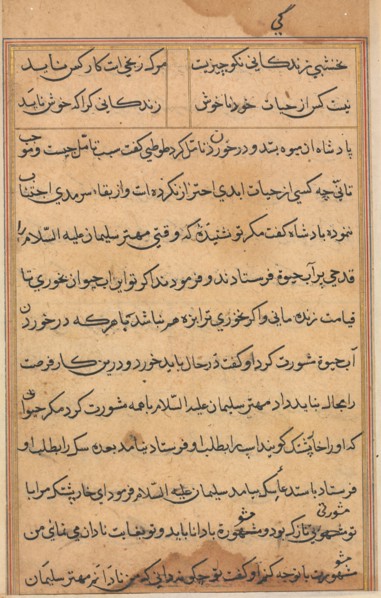 نخشبی زندگانی نکو چیزیست
مرگ زخمی است کار کس ناید
نیست کس از حیات خود ناخوش
زندگانی کرا که خوش ناید
پادشاه آن میوه بستد و در خوردن تامل کرد طوطی گفت سبب تامل چیست و موجب
تانی چه کسی از حیات ابدی احتراز نکرده است و از بقاء سرمدی اجتناب
ننموده پادشاه گفت مگر تو نشنیده که وقتی مهتر سلیمان علیه السلام را
قدحی پر آب حیوة فرستادند و فرمودند اگر تو این آب حیوان بخوری تا
قیامت زنده مانی و اگر نخوری ترا بزه هم نباشد با هرکه در خوردن
آب حیوة مشورت کرد او گفت در حال باید خورد و درین کار فرصت
را مجال نباید داد مهتر سلیمان علیه السلام با همه مشورت کرد مگر حیوانی
که او را خارپشتک گویند اسپ را بطلب او فرستاد نیامد بعده سگ را بطلب او
فرستاد باستدعای سگ بیامد سلیمان علیه السلام فرمود ای خارپشتک مرا با
تو مشورتی نازک بود و مشورة با دانا باید و تو بغایت نادان می نمائی من
مشورت با تو چه کنم او گفت تو چگونه دانی که من نادانم مهتر سلیمان